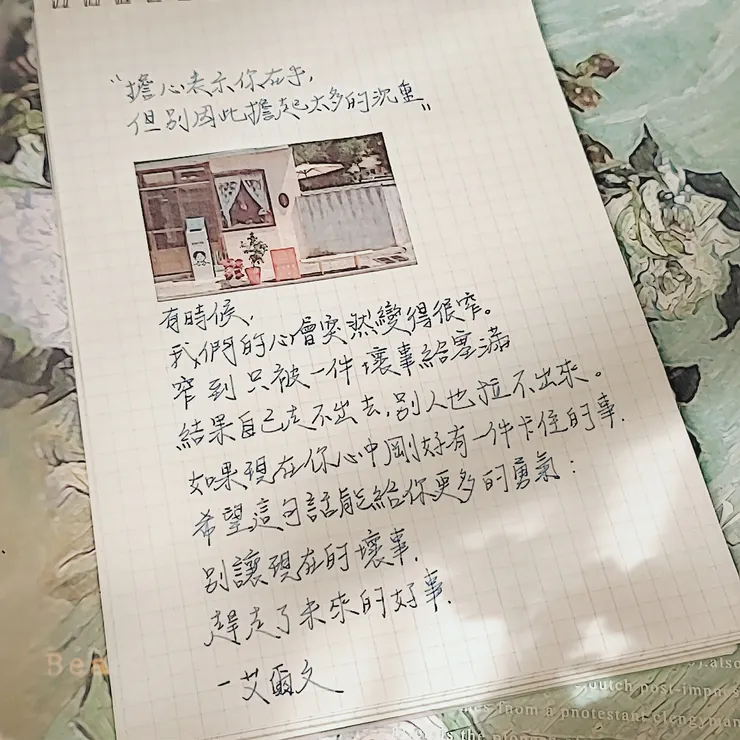 “擔心表示你在乎,
但別因此擔起太多的沉重”
有時候,
我們的心會突然變得很窄。
窄到只被一件壞事給塞滿
結果自己走不出去,別人也拉不出來。
如果現在你心中剛好有一件卡住的事.
希望這句話能給你更多的勇氣:
別讓現在的壞事.
趕走了未來的好事.
-艾爾文
Bea
).also
dutch post-impres
from a protestant clergyman
is the